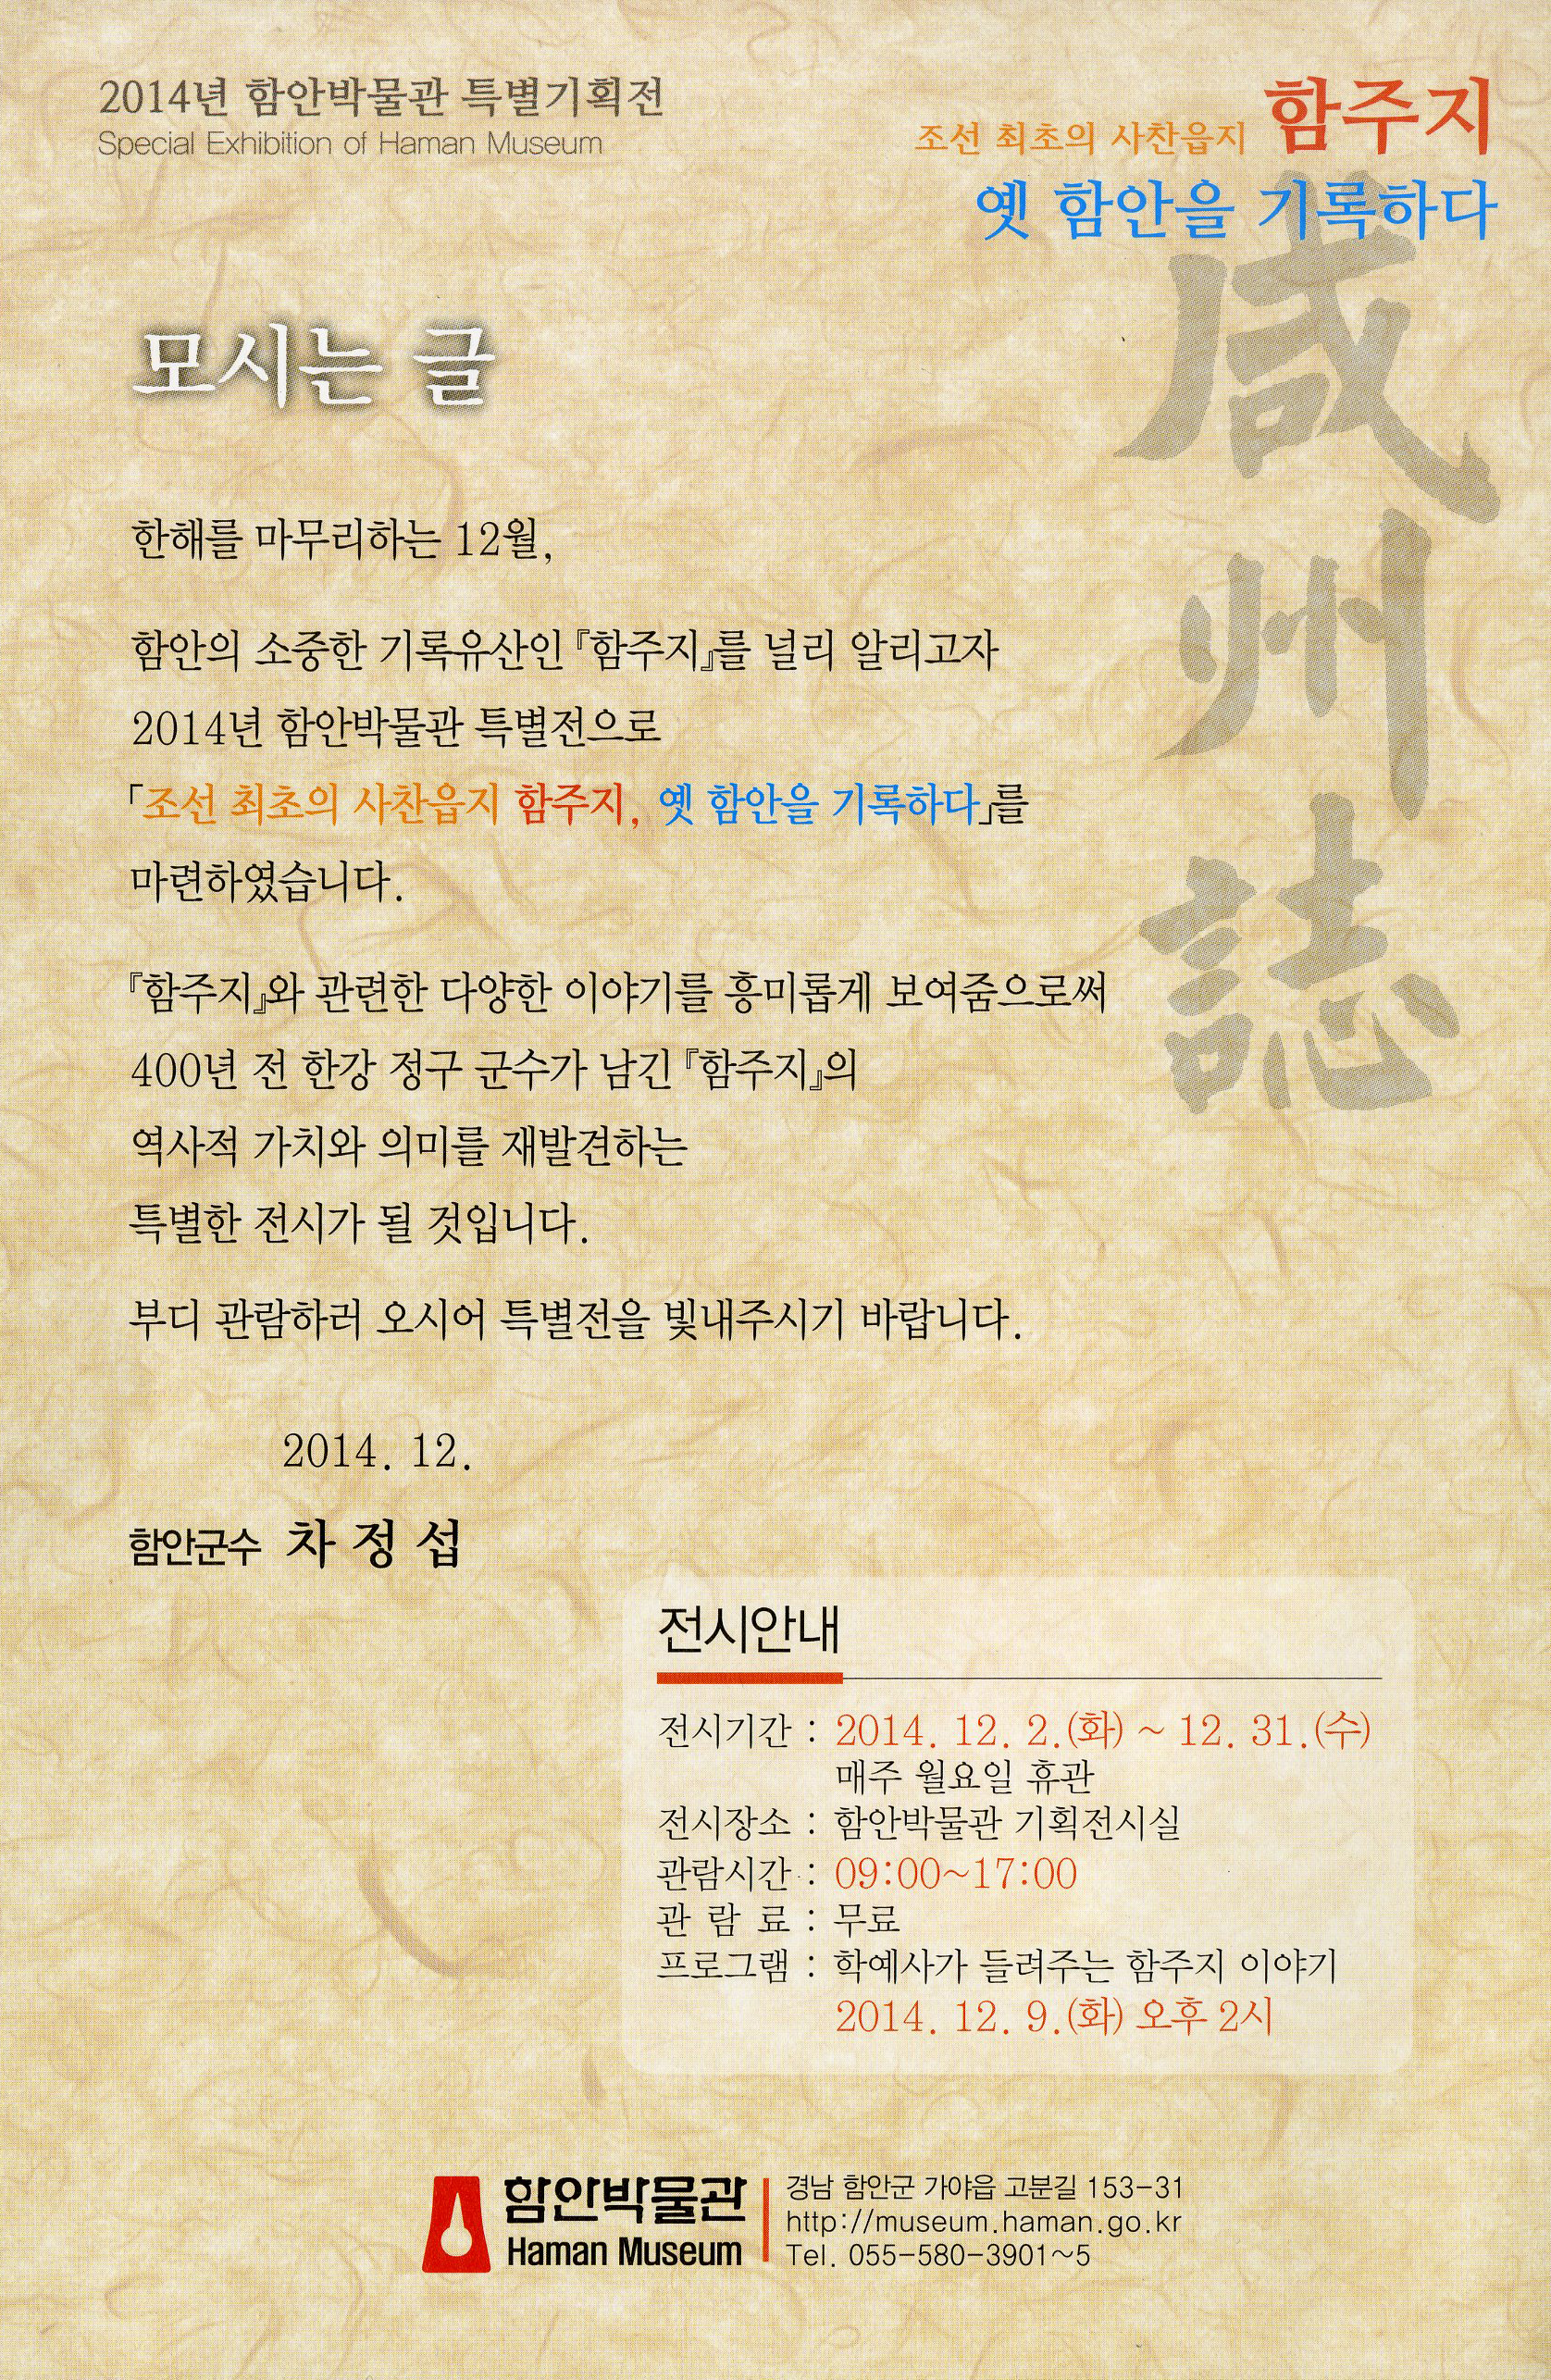 2014년 함안박물관 특별기획전
Special Exhibition of Haman Museum
조선 최초의 사찬읍지 함주지
옛 함안을 기록하다
咸州誌
모시는 글
한해를 마무리하는 12월,
함안의 소중한 기록유산인『함주지』를 널리 알리고자
2014년 함안박물관 특별전으로
「조선 최초의 사찬읍지 함주지, 옛 함안을 기록하다」를
마련하였습니다.
『함주지』와 관련한 다양한 이야기를 흥미롭게 보여줌으로써
400년 전 한강 정구 군수가 남긴『함주지』의
역사적 가치와 의미를 재발견하는
특별한 전시가 될 것입니다.
부디 관람하러 오시어 특별전을 빛내주시기 바랍니다.
2014. 12.
함안군수 차 정 섭
전시안내
전시기간 : 2014. 12. 2.(화) ~ 12. 31.(수)
매주 월요일 휴관
전시장소 : 함안박물관 기획전시실
관람시간 : 09:00~17:00
관 람 료 : 무료
프로그램 : 학예사가 들려주는 함주지 이야기
2014. 12. 9.(화) 오후 2시
함안박물관
Haman Museum
경남 함안군 가야읍 고분길 153-31
http://museum.haman.go.kr
Tel. 055-580-3901~5